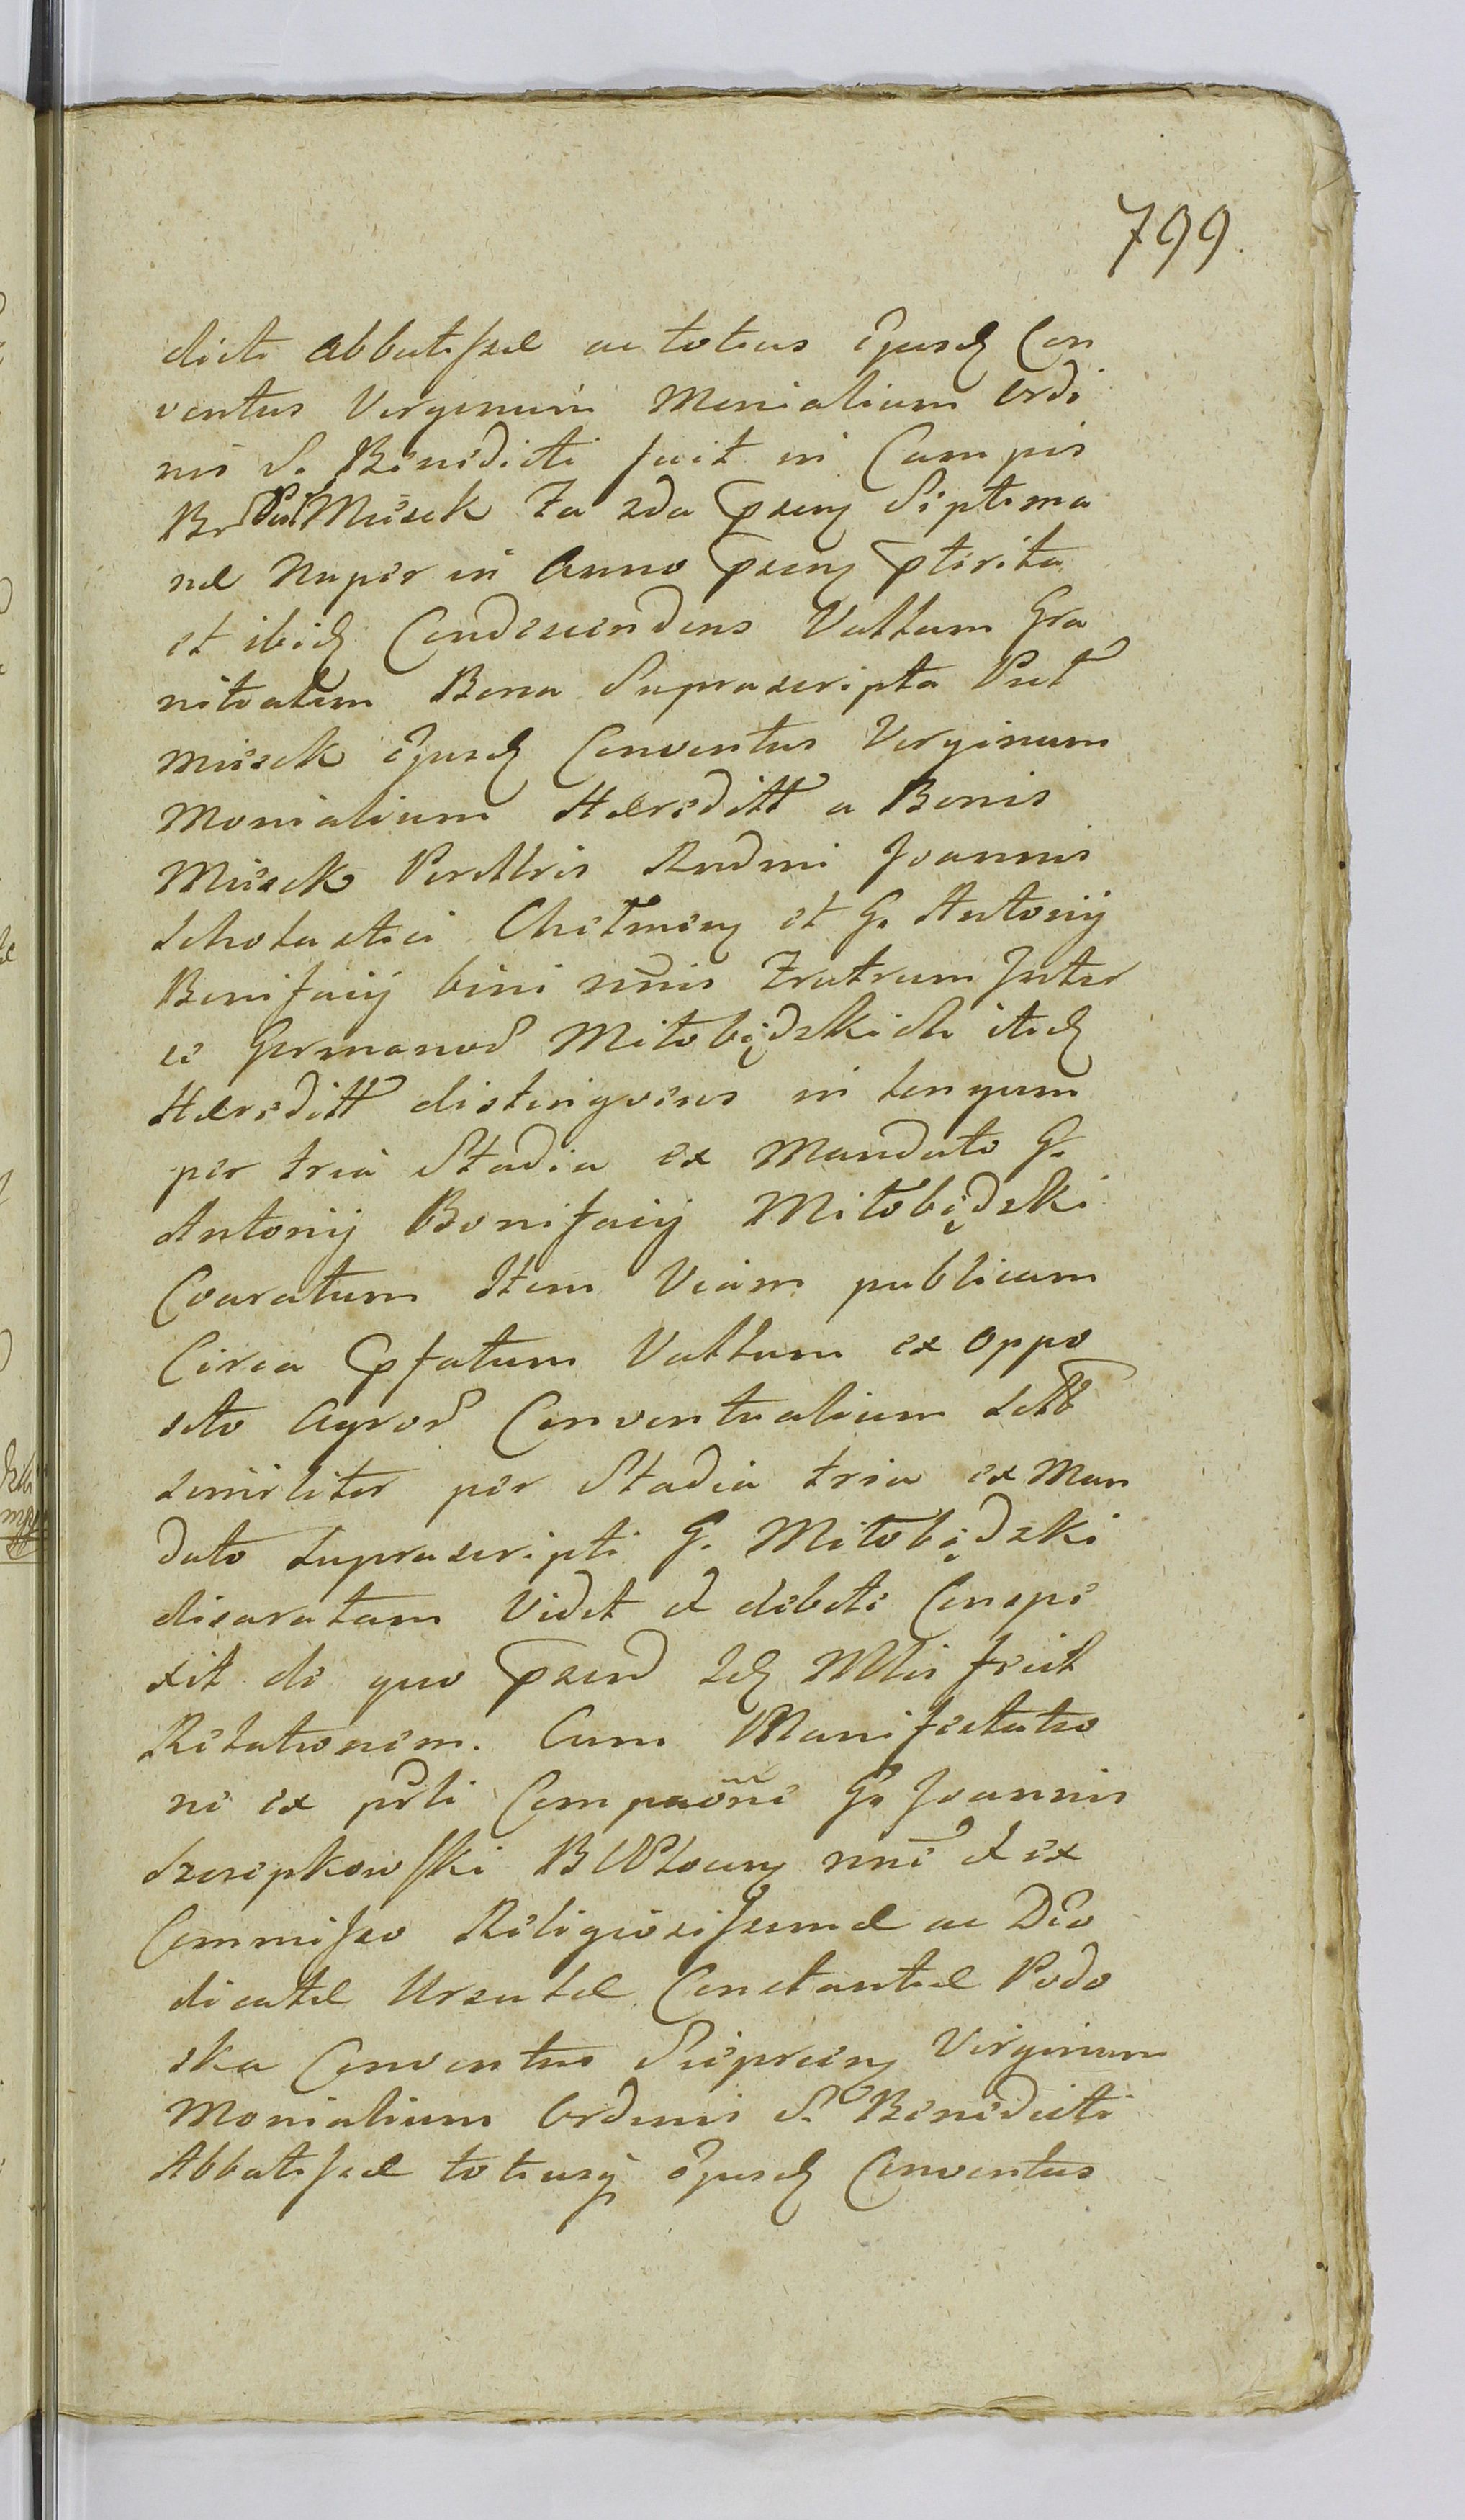 799.
dictæ Abbatissæ ac totius Ejusd Con
ventus Virginum Monialium Ordi
nis S. Benedicti fuit in Campis
Miszek Fa 2da præn Septima
næ nuper in Anno præn præterita
et ibid Condescendens Vallum Gra
nitialem Bona Suprascripta
Miszek Ejusd Conventus Virginum
Monialium Hæreditt a Bonis
Miszek Perillris Rndmi Joannis
Scholastici Chełmen et G. Antonij
Bonifacij bini nnis Fratrum Inter
se Germanor Miłobędzkich itid
Hæreditt distingvens in longum
per tria Stadia ex Mandato G.
Antonij Bonifacij Miłobędzki
Coaratum Item Viam publicam
Circa præfatum Vallum ex oppo
sito Agror Conventualium
similiter per Stadia tria ex Man
dato Suprascripti G. Miłobędzki
disaratam Vidit et debite Conspe
xit de quo præsens id Mlis fecit
Relationem. Cum Manifestatio
ne ex prsli Compaõne G. Joannis
Szczepkowski nnē et ex
Commisso Religiosissimæ ac Deo
dicatæ Ursulæ Constantiæ Podo
ska Conventus Sierpcen Virginum
Monialium Ordinis S. Benedicti
Abbatissæ totiusq Ejusd Conventus